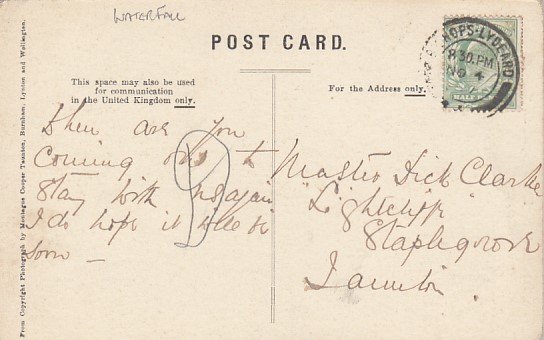 WATERFALL
POST CARD.
This space may also be used
for communication
in the United Kingdom only.
For the Address only.
BISHOPS-LYDEARD
8.30.PM
NO 4
HALF
When are you
coming to
stay with us again
I do hope it will be
soon —
Master Dick Clarke
"Lightcliffe"
Staplegrove
Taunton
From Copyright Photograph by Montague Cooper Taunton, Burnham, Lynton and Wellington.